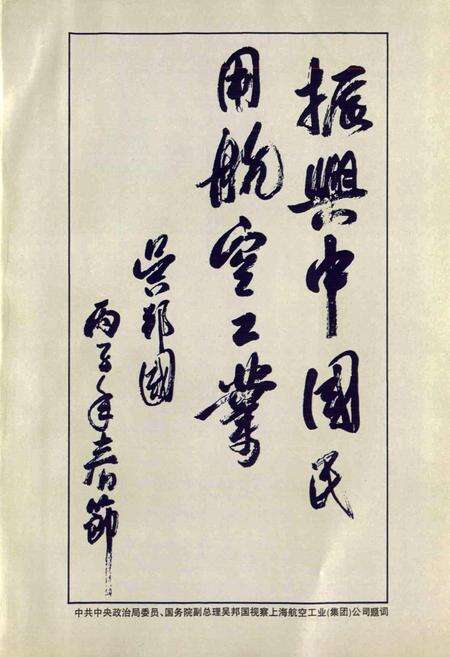 振興中國民
用航空工業
吴邦國
丙子年春節
中共中央政治局委员、国务院副总理吴邦国视察上海航空工业(集团)公司题词